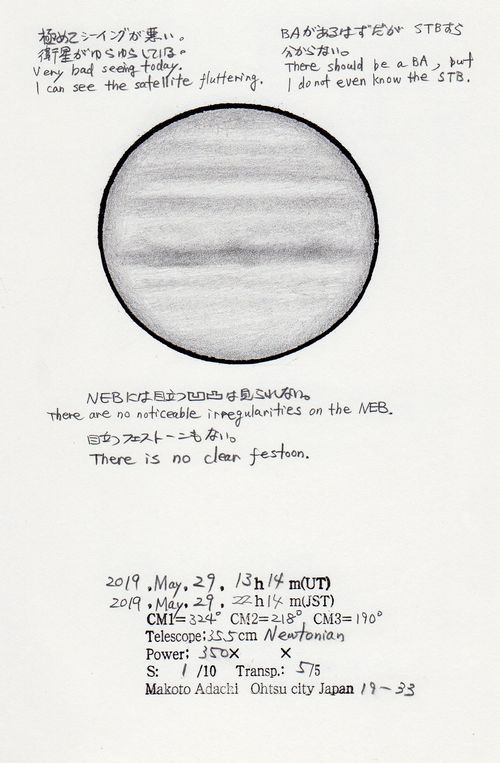 極めてシーイングが悪い。
衛星がゆらゆらしている。
Very bad seeing today.
I can see the satellite fluttering.
BAがあるはずだが STBすら
分からない。
There should be a BA, but
I do not even know the STB.
NEBには目立つ凹凸は見られない。
There are no noticeable irregularities on the NEB.
目立つフェストーンもない。
There is no clear festoon.
2019, May, 29, 13h14m(UT)
2019, May, 29, 22h14m(JST)
CM1=324° CM2=218° CM3=190°
Telescope;35.5cm Newtonian
Power; 350× ×
S: 1/10 Transp.: 5/5
Makoto Adachi Ohtsu city Japan 19-33